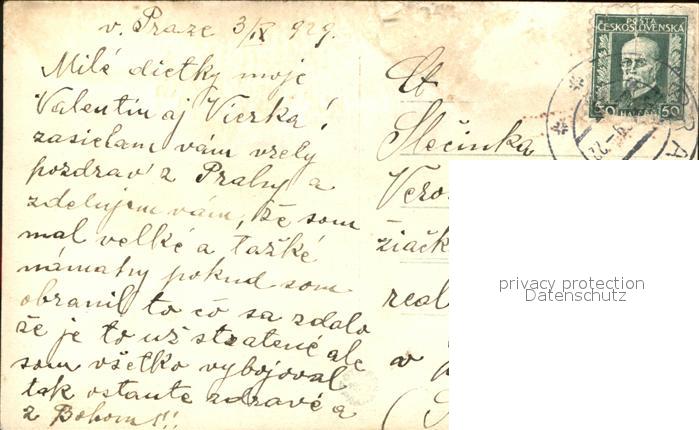 v. Praze 3/IX 929.
Milé dietky moje
Valentín aj Vierka!
zasielam vám vrelý
pozdrav z Prahy a
zdelujem vám, že som
mal velké a tažké
námahy pokud som
obranil to čo sa zdalo
že je to už stratené ale
som všetko vybojoval
tak ostante zdravé a
z Bohom!!
Ct
Slečinka
Vero
žiačk
real
v
(S
POŠTA
ČESKOSLOVENSKÁ
50 HALÉŘŮ 50
privacy protection
Datenschutz